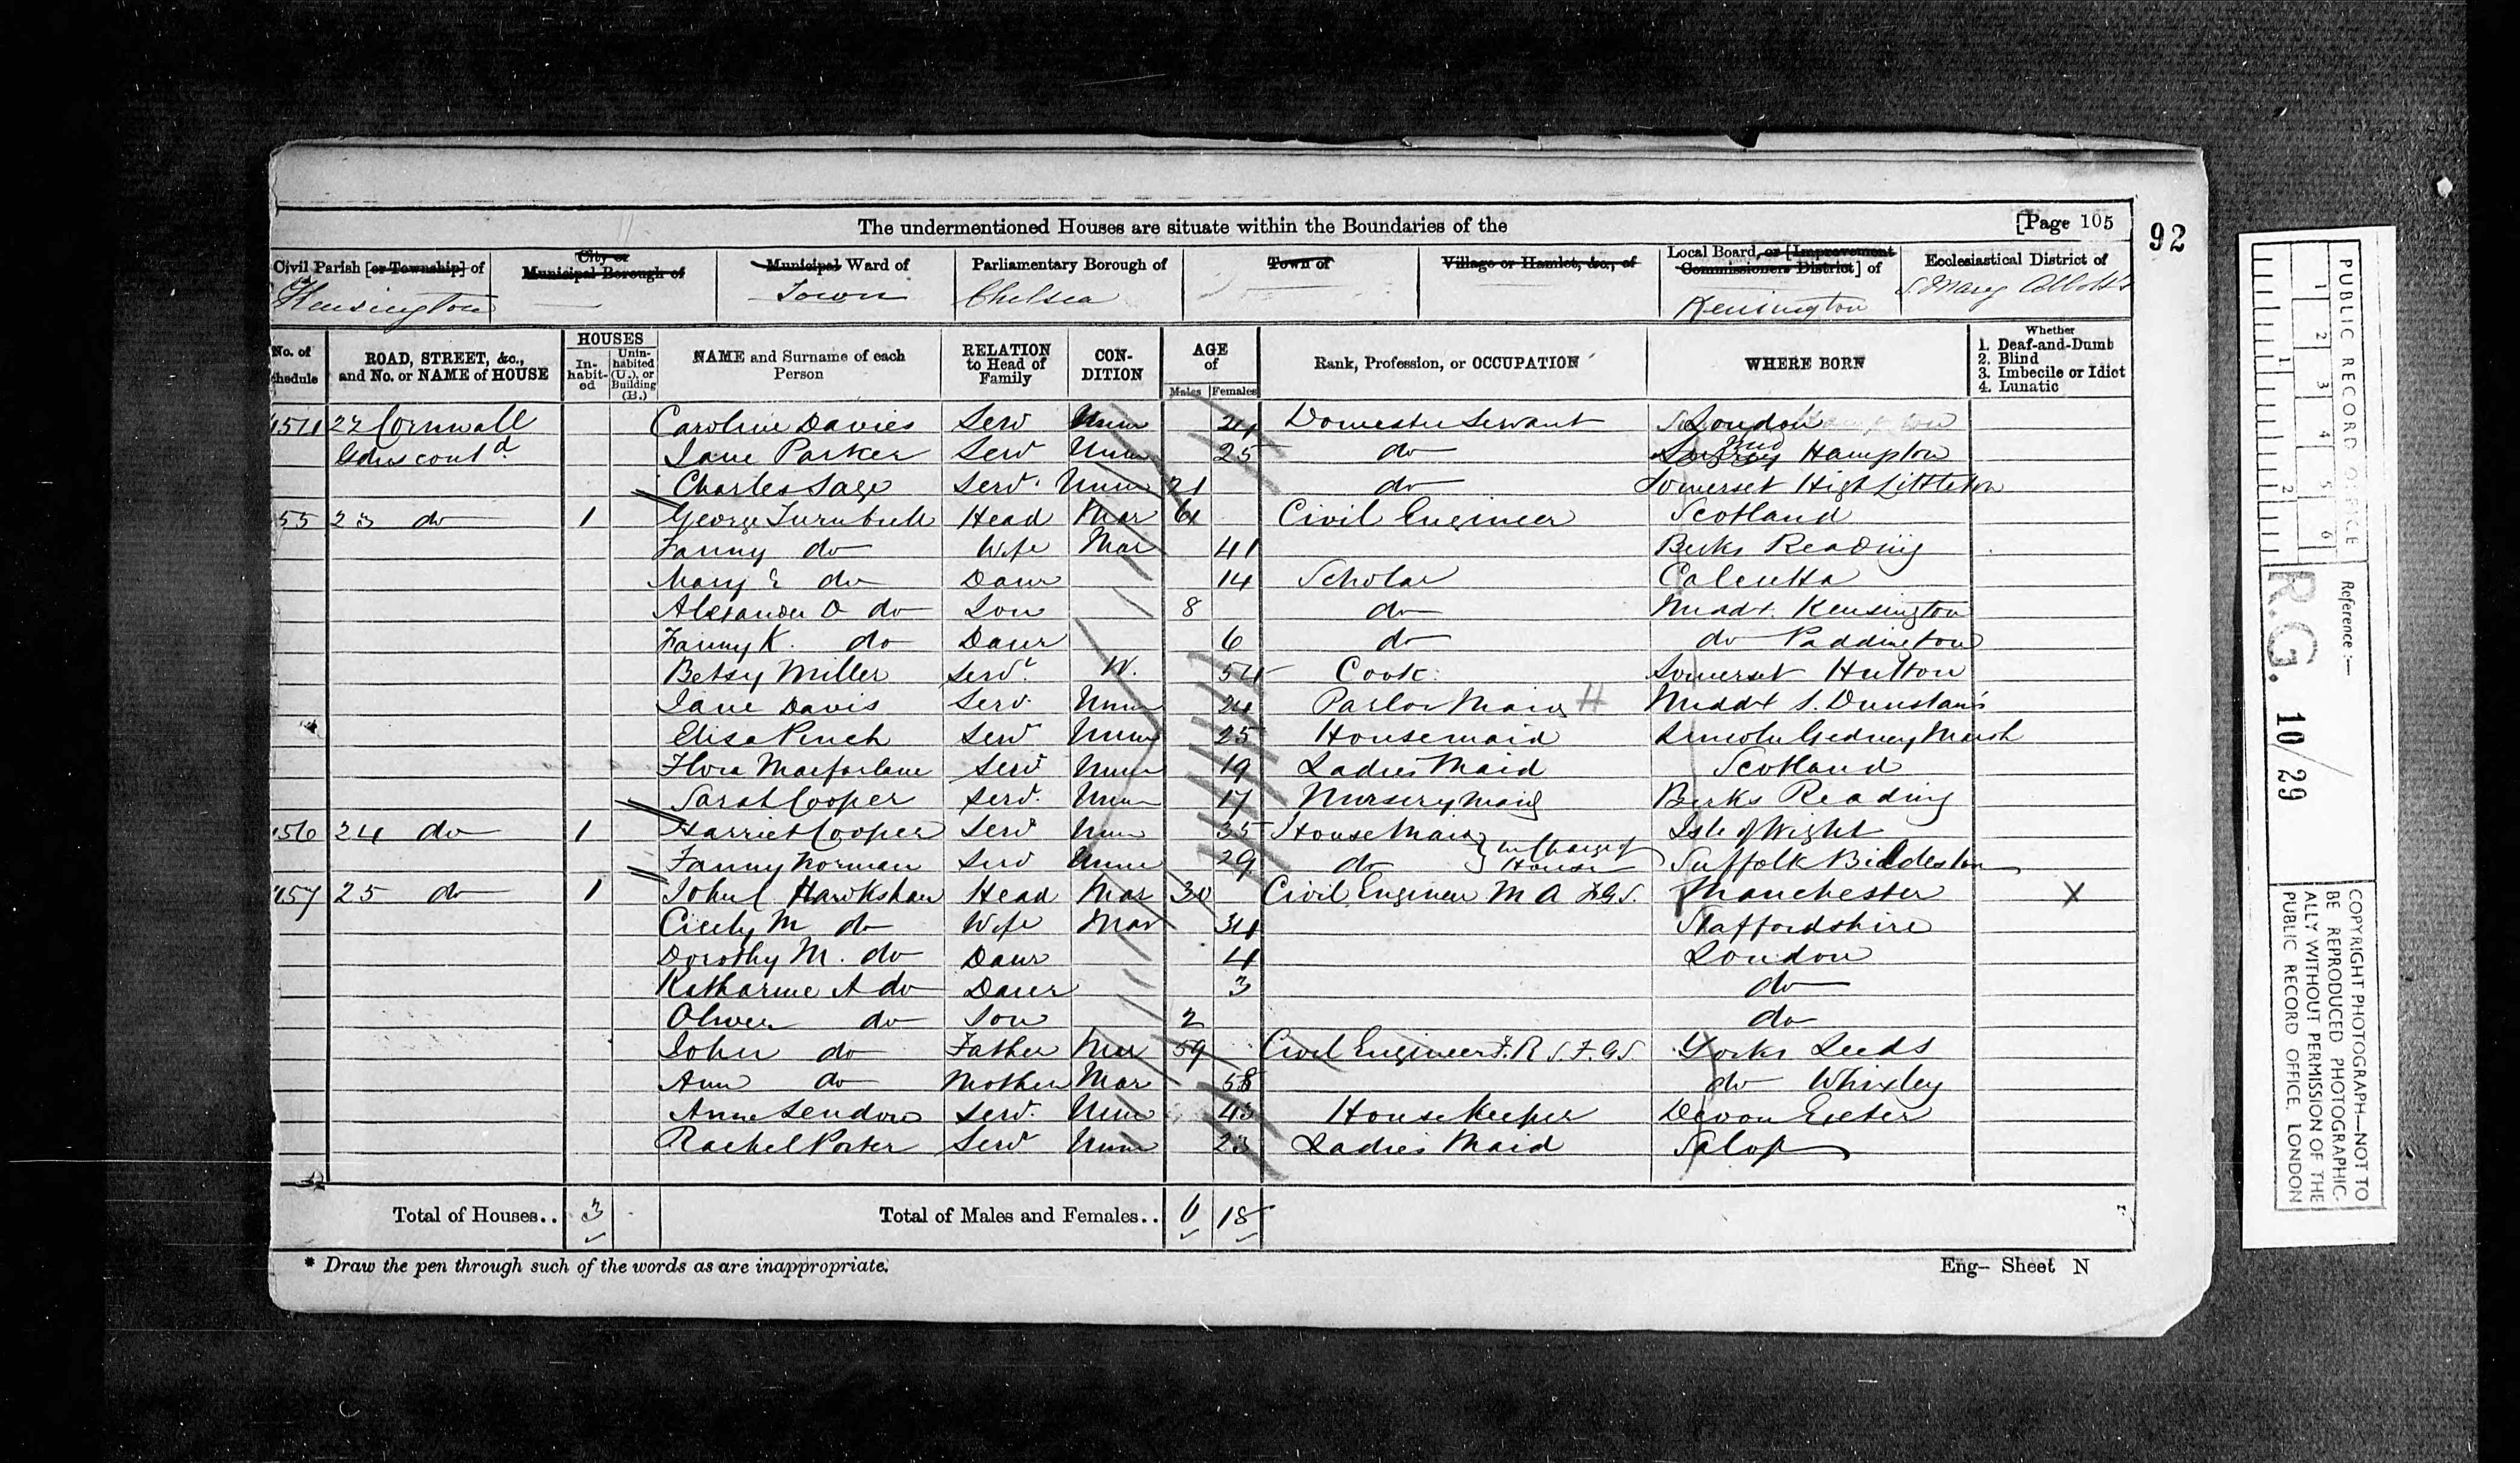 The undermentioned Houses are situate within the Boundaries of the
[Page 105
92
Civil Parish [or Township] of
City or Municipal Borough of
Municipal Ward of
Parliamentary Borough of
Town of
Village or Hamlet, &c., of
Local Board, or [Improvement Commissioners District] of
Ecclesiastical District of
Kensington
Town
Chelsea
Kensington
S. Mary Abbotts
No. of
chedule
ROAD, STREET, &c., and No. or NAME of HOUSE
HOUSES
In-habit-ed
Unin-habited (U.), or Building (B.)
NAME and Surname of each Person
RELATION to Head of Family
CON-DITION
AGE of
Males
Females
Rank, Profession, or OCCUPATION
WHERE BORN
Whether
1. Deaf-and-Dumb
2. Blind
3. Imbecile or Idiot
4. Lunatic
22 Cornwall Caroline Davies Serv Unm Domestic Servant London
Gdns contd Jane Parker Serv Unm 25 do Hampton
Charles Sage Serv. Unm 21 do Somerset High Littleton
55 23 do 1 George Turnbull Head Mar 61 Civil Engineer Scotland
Fanny do Wife Mar 41 Berks Reading
Mary E do Daur 14 Scholar Calcutta
Alexander O do Son 8 do Middx. Kensington
Fanny K. do Daur 6 do do Paddington
Betsy Miller Servt W. 54 Cook Somerset Hutton
Jane Davis Serv. Unm 24 Parlor Maid H Middx S. Dunstan's
Elisa Pinch Serv Unm 25 Housemaid Lincoln Gedney Marsh
Flora Macfarlane Serv Unm 19 Ladies Maid Scotland
Sarah Cooper Serv. Unm 17 Nursery maid Berks Reading
56 24 do 1 Harriet Cooper Serv Unm 35 House Maid } In charge of Isle of Wight
Fanny Norman Serv Unm 29 do House Suffolk Bildeston
57 25 do 1 John C Hawkshaw Head Mar 30 Civil Engineer M A F.G.S. Manchester X
Cicely M do Wife Mar Staffordshire
Dorothy M. do Daur 4 London
Katharine A do Daur 3 do
Oliver do Son 2 do
John do Father Mar 59 Civil Engineer F.R.S. F.G.S. Yorks Leeds
Ann do Mother Mar 58 do Whixley
Anne Serv. Unm 43 House Keeper Devon Exeter
Rachel Porter Serv Unm 23 Ladies Maid Salop
Total of Houses.. 3
Total of Males and Females.. 6 18
* Draw the pen through such of the words as are inappropriate.
Eng- Sheet N
PUBLIC RECORD OFFICE
1 2 3 4 5 6
1 2
Reference :—
R.G. 10/29
COPYRIGHT PHOTOGRAPH—NOT TO BE REPRODUCED PHOTOGRAPHIC-ALLY WITHOUT PERMISSION OF THE PUBLIC RECORD OFFICE, LONDON